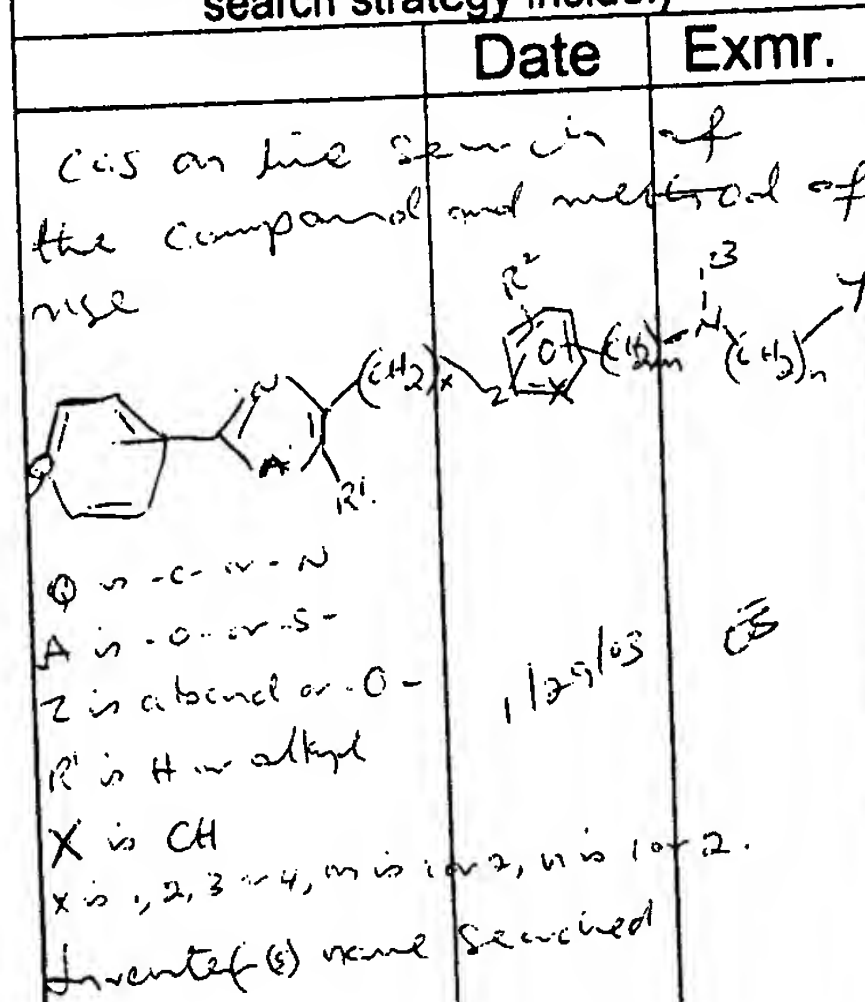 search strategy includ
Date Exmr.
CAS on line search of
the compound and method of
use
R² R³
N (CH2)x Z X (CH2)m N (CH2)n Y
Q A R'
Q is -C- or -N
A is -O- or -S-
Z is a bond or -O-
1/29/03
R' is H or alkyl
X is CH
x is 1, 2, 3 or 4, m is 1 or 2, n is 1 or 2.
Inventor(s) name searched